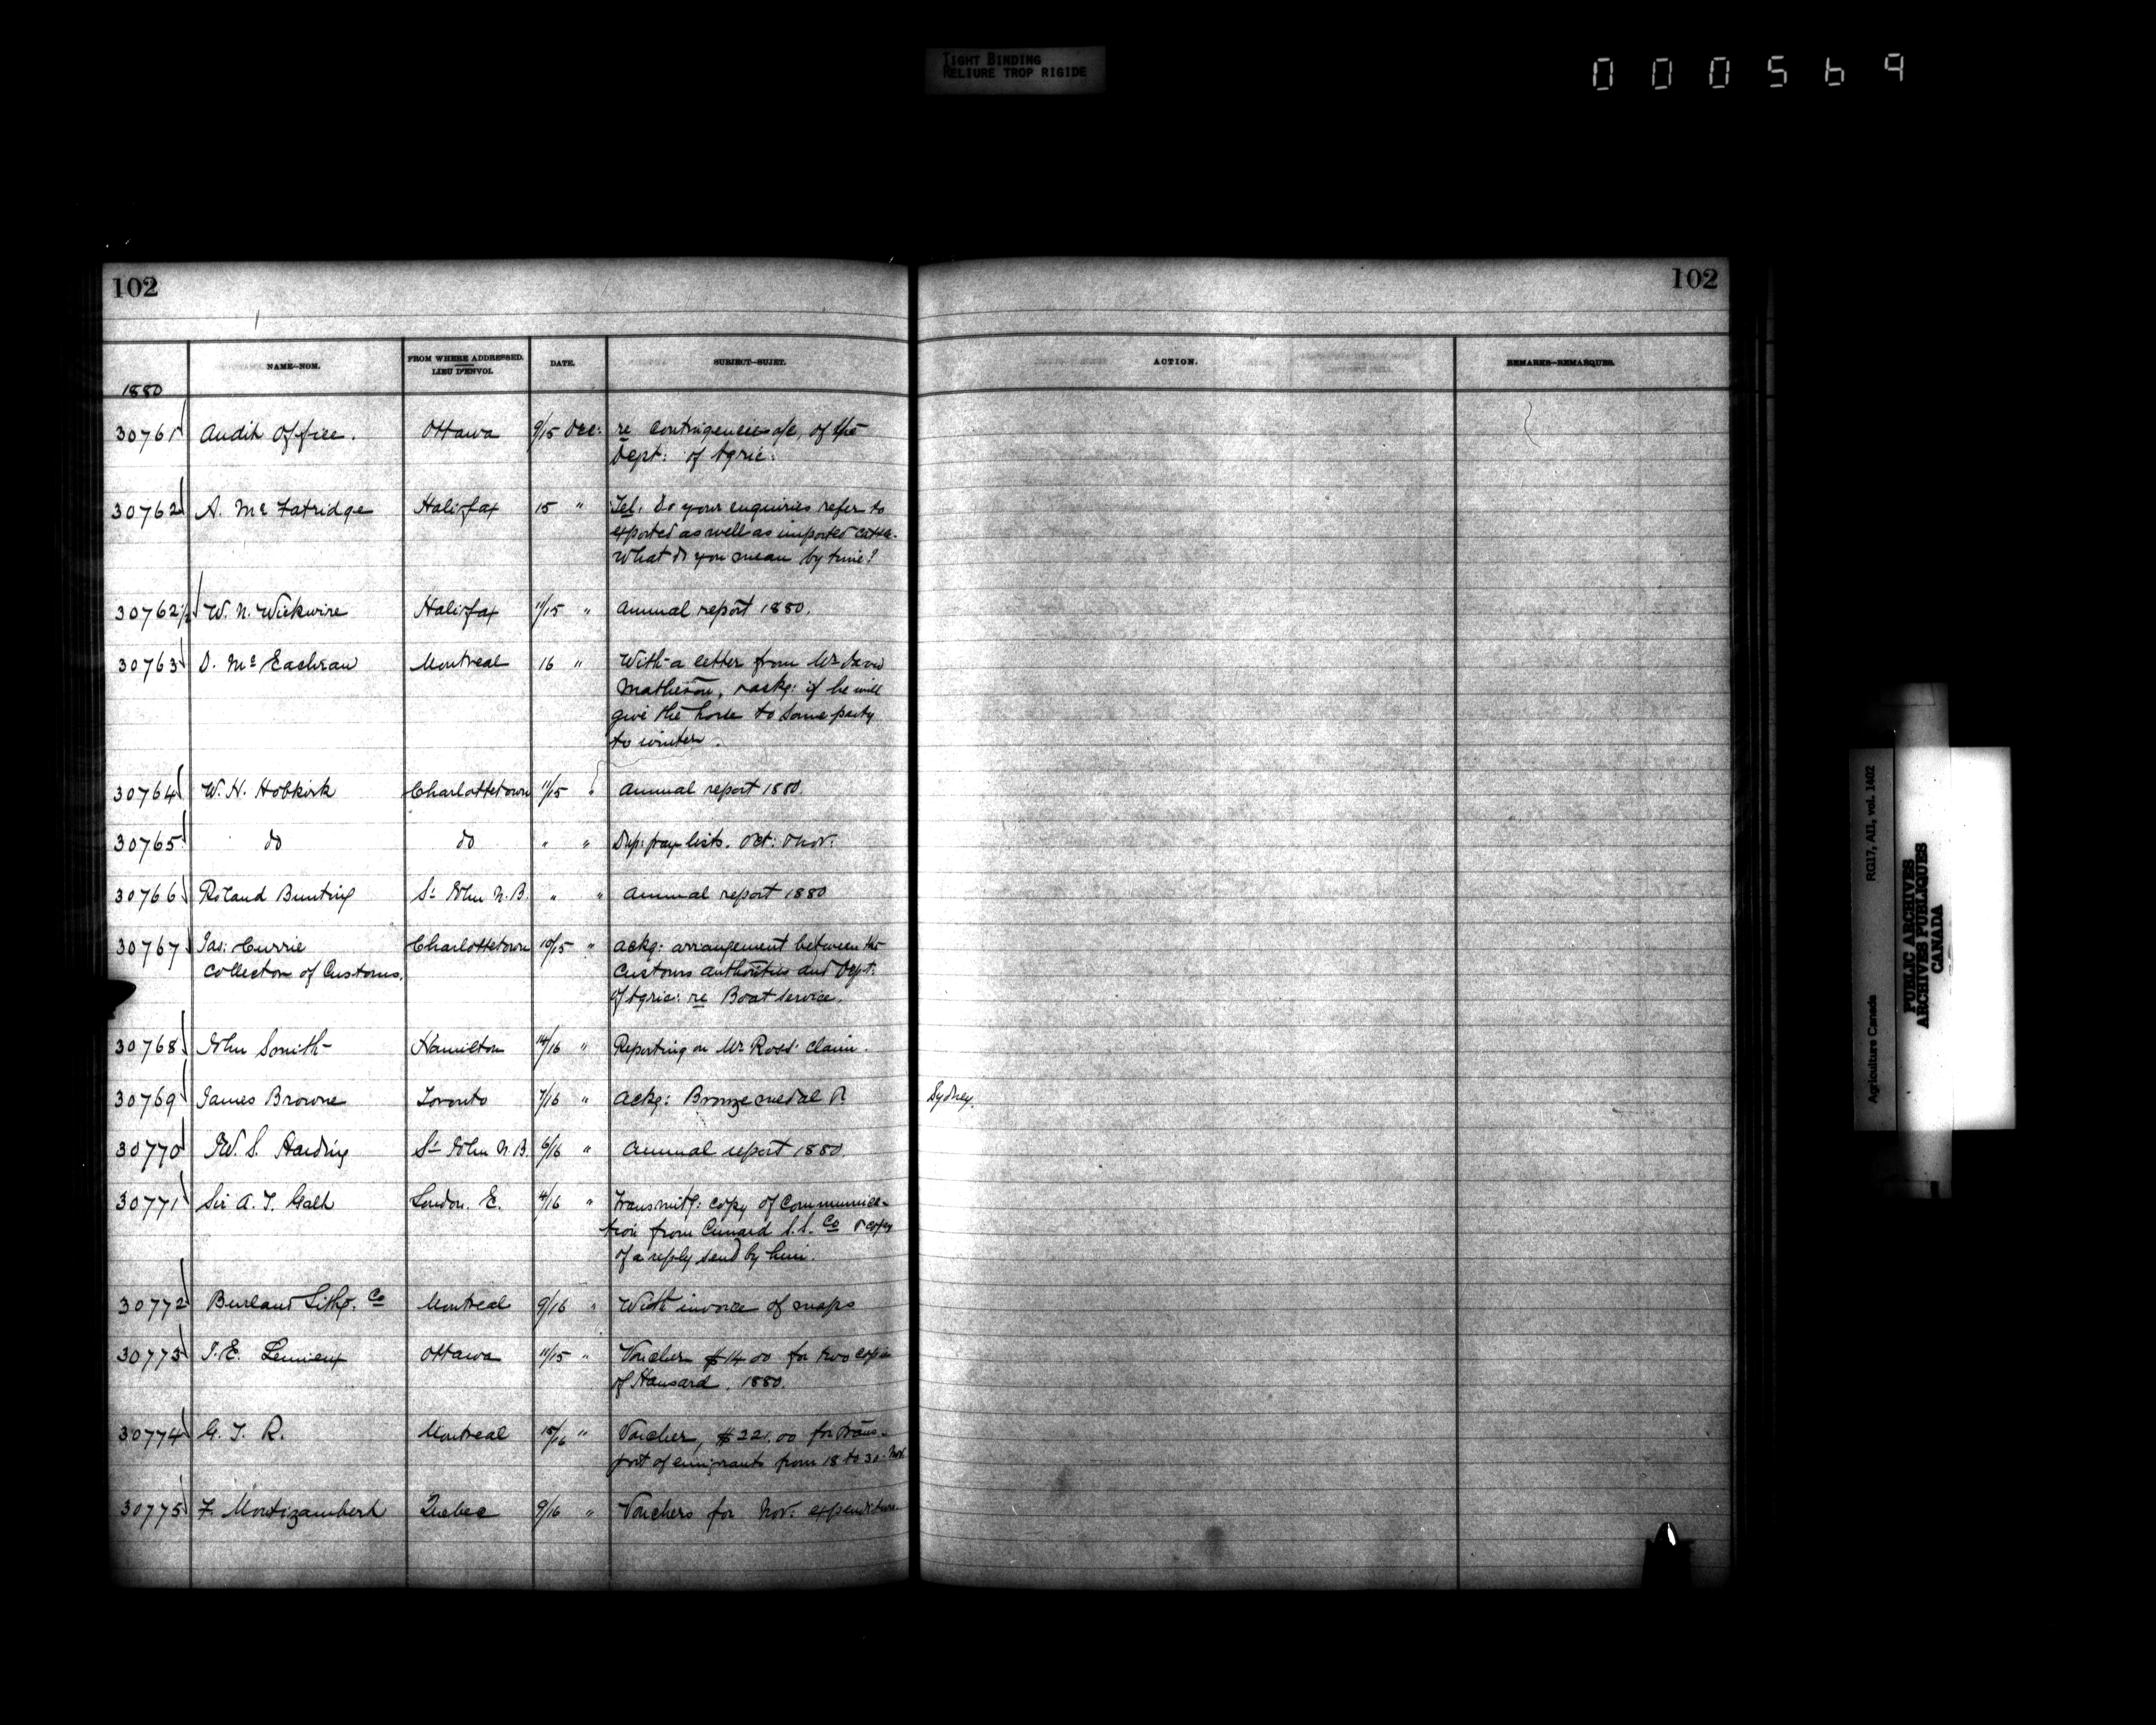 TIGHT BINDING
RELIURE TROP RIGIDE
000569
102
102
NAME—NOM.
FROM WHERE ADDRESSED.
LIEU D'ENVOI.
DATE.
SUBJECT—SUJET.
ACTION.
REMARKS—REMARQUES.
1880
30761 Audit Office. Ottawa 9/15 Dec: re contingencies a/c, of the
Dept: of Agric:
30762 A. McFatridge Halifax 15 " Tel. Do your enquiries refer to
exported as well as imported cattle.
What do you mean by time?
30762½ W. N. Wickwire Halifax 11/15 " Annual report 1880.
30763 D. McEachran Montreal 16 " With a letter from Mr David
Matheson, & askg: if he will
give the horse to some party
to winter.
30764 W. H. Hobkirk Charlottetown 11/15 " Annual report 1880.
30765 do do " " Dup: pay lists. Oct: & Nov:
30766 Roland Bunting St John N.B. " " Annual report 1880
30767 Jas: Currie Charlottetown 10/15 " Ackg: arrangement between the
Collector of Customs. Customs authorities and Dept:
of Agric: re Boat Service.
30768 John Smith Hamilton 14/16 " Reporting on Mr Ross' claim.
30769 James Browne Toronto 7/16 " Ackg: Bronze medal &. Sydney.
30770 W. S. Harding St John N.B. 6/16 " Annual report 1880.
30771 Sir A. T. Galt London. E. 4/16 " Transmitg: copy of communica-
tion from Cunard S.S. Co & copy
of a reply send by him.
30772 Burland Litho. Co Montreal 9/16 " With invoice of maps
30773 Lemieux Ottawa 11/15 " Voucher $14.00 for two copies
of Hansard. 1880.
30774 G. T. R. Montreal 15/16 " Voucher, $22.00 for trans-
port of emigrants from 18 to 30. Nov.
30775 F. Montizambert Quebec 9/16 " Vouchers for Nov: expenditure
Agriculture Canada RG17, AII, vol. 1402
PUBLIC ARCHIVES
ARCHIVES PUBLIQUES
CANADA